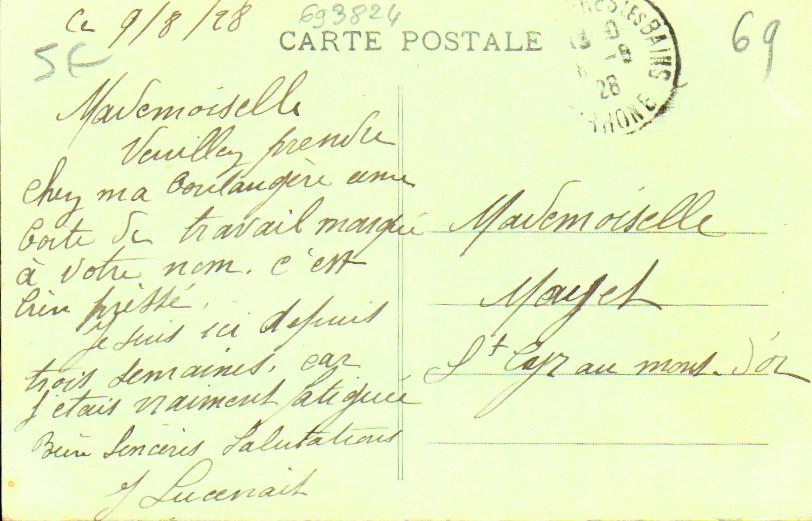 Ce 9/8/28
693824
CARTE POSTALE
69
5€
LES BAINS
28
RHONE
Mademoiselle
Veuillez prendre
chez ma boulangère une
boite de travail marqué
à votre nom. c'est
bien pressé.
Je suis ici depuis
trois semaines. car
j'etais vraiment fatiguée
Bien Sincères Salutations
Mademoiselle
Mayet
St Cyr au mont. d'or